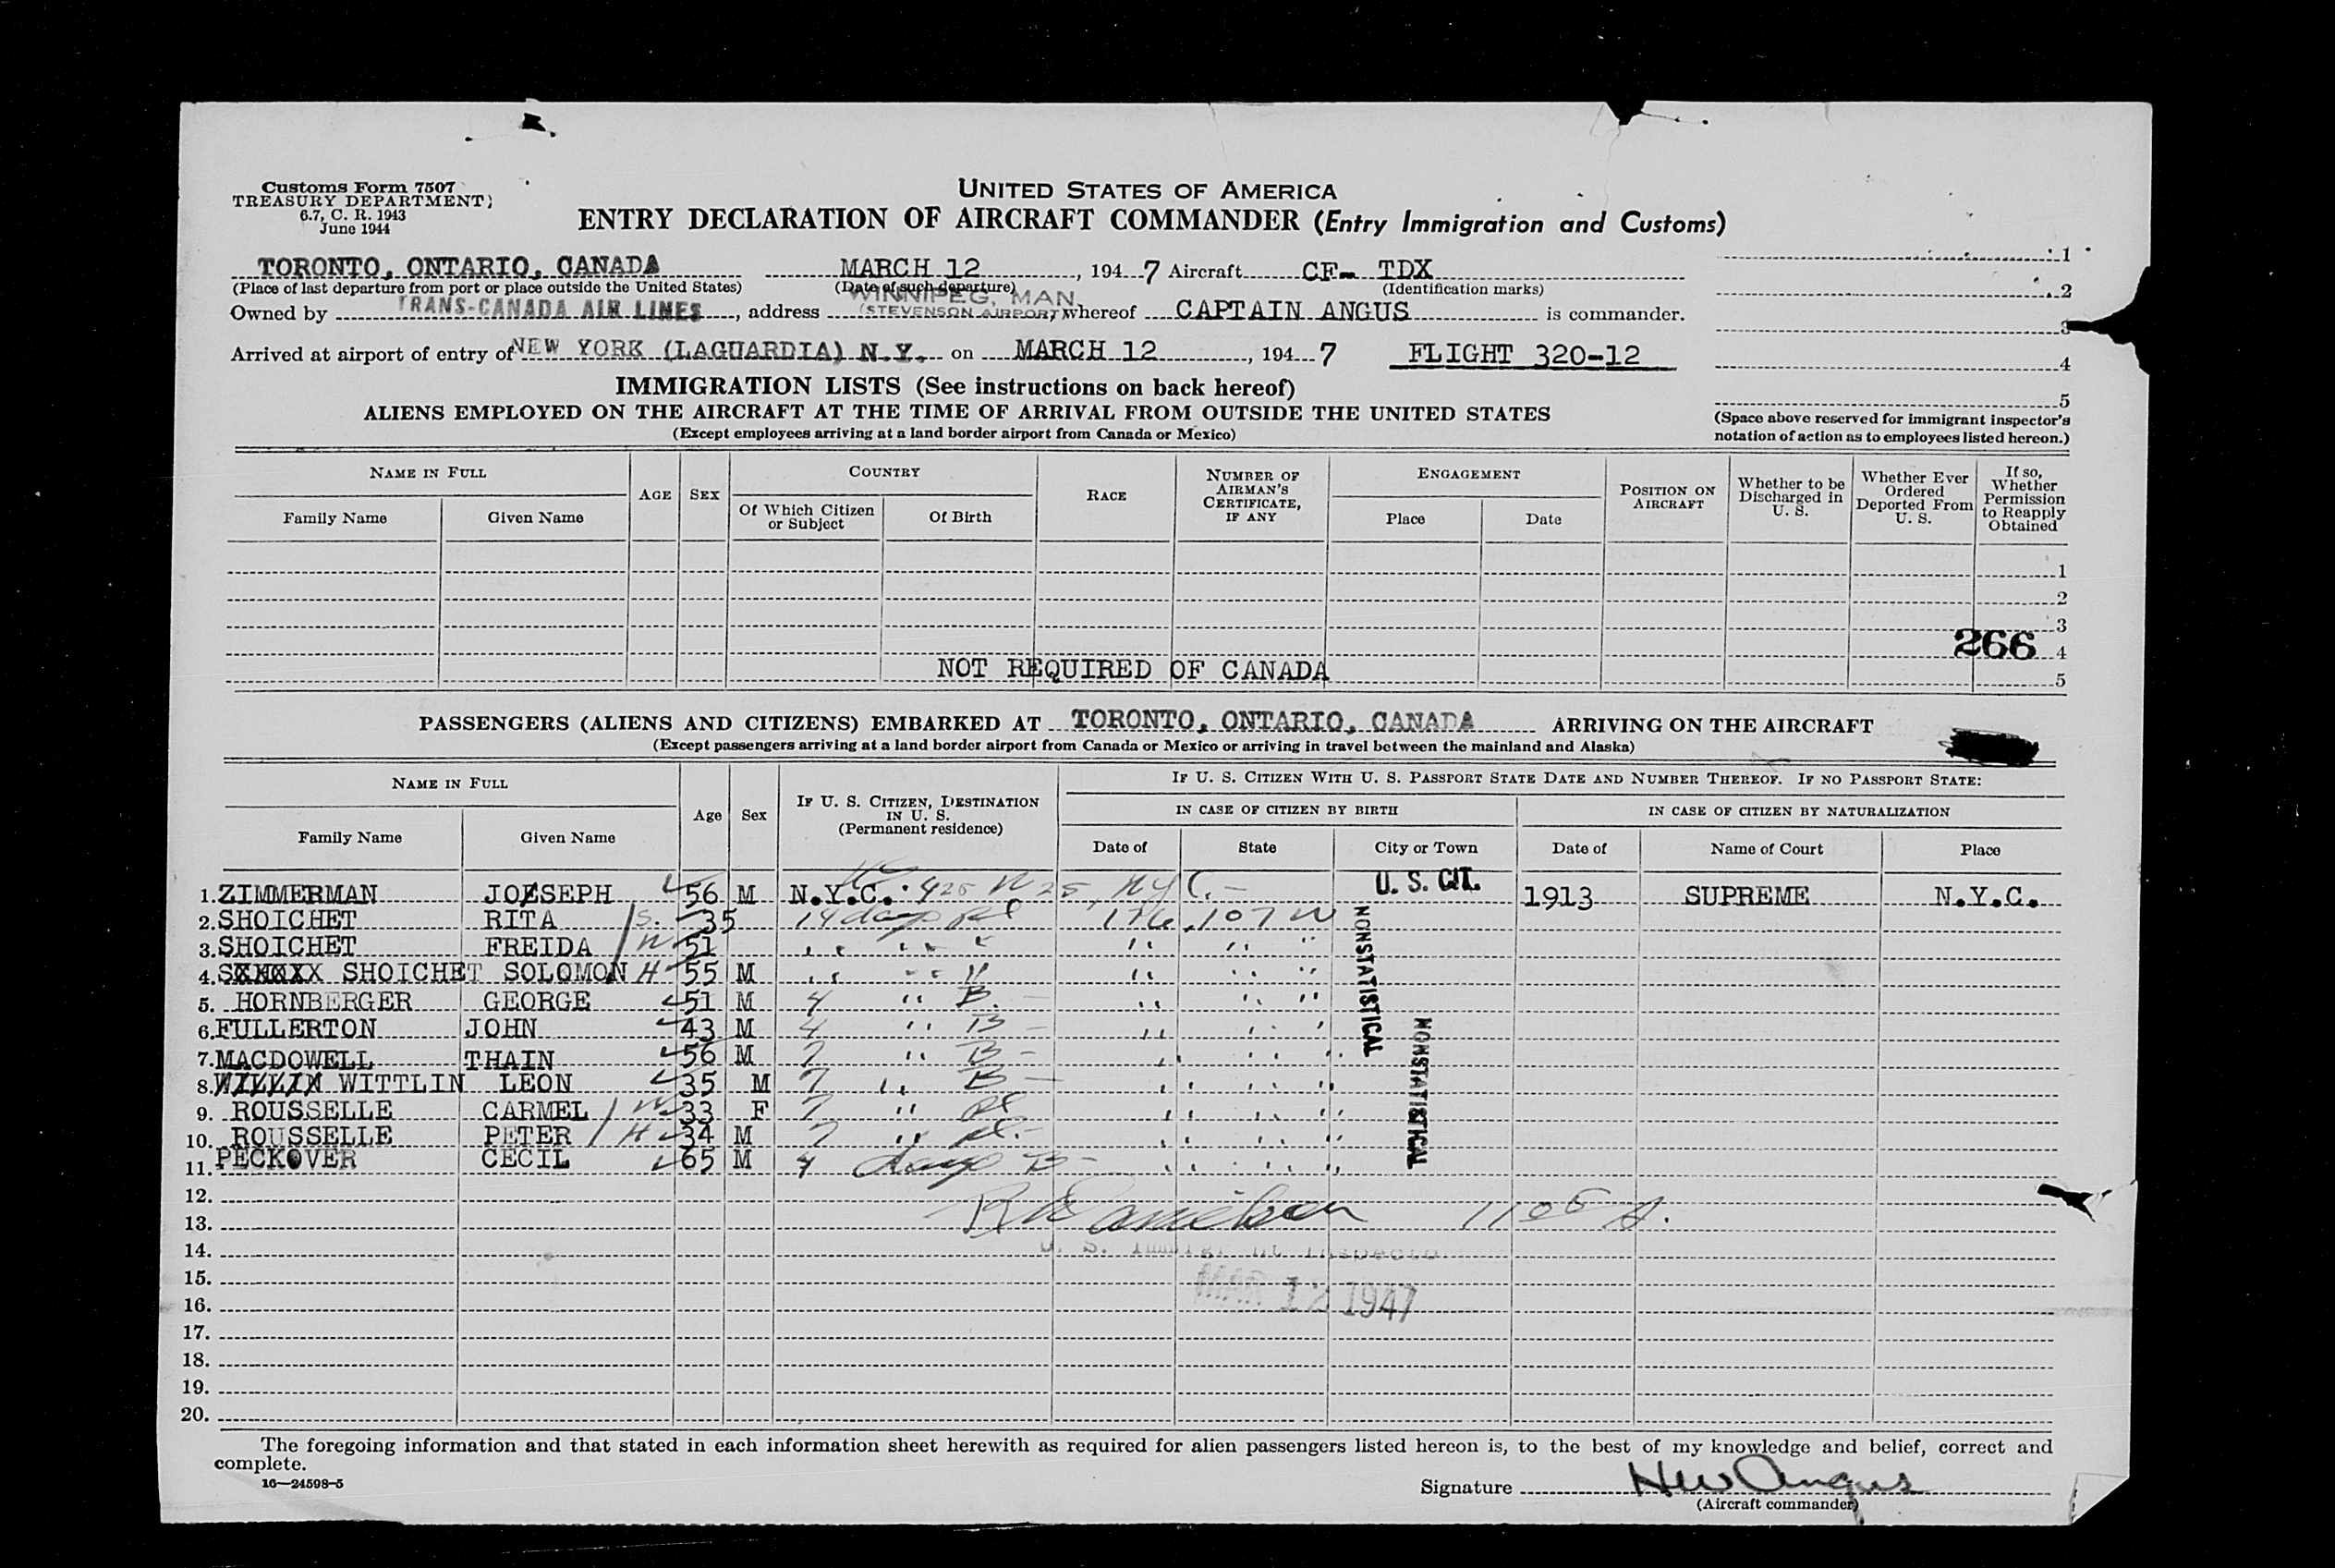 Customs Form 7507
TREASURY DEPARTMENT
6.7, C. R. 1943
June 1944
UNITED STATES OF AMERICA
ENTRY DECLARATION OF AIRCRAFT COMMANDER (Entry Immigration and Customs)
TORONTO, ONTARIO, CANADA MARCH 12, 1947 Aircraft CF- TDX
(Place of last departure from port or place outside the United States) (Date of such departure) (Identification marks)
WINNIPEG, MAN.
Owned by TRANS-CANADA AIR LINES, address (STEVENSON AIRPORT) whereof CAPTAIN ANGUS is commander.
Arrived at airport of entry of NEW YORK (LAGUARDIA) N.Y. on MARCH 12, 1947 FLIGHT 320-12
1
2
3
4
5
(Space above reserved for immigrant inspector's
notation of action as to employees listed hereon.)
IMMIGRATION LISTS (See instructions on back hereof)
ALIENS EMPLOYED ON THE AIRCRAFT AT THE TIME OF ARRIVAL FROM OUTSIDE THE UNITED STATES
(Except employees arriving at a land border airport from Canada or Mexico)
NAME IN FULL AGE SEX COUNTRY RACE NUMBER OF AIRMAN'S CERTIFICATE, IF ANY ENGAGEMENT POSITION ON AIRCRAFT Whether to be Discharged in U. S. Whether Ever Ordered Deported From U. S. If so, Whether Permission to Reapply Obtained
Family Name Given Name Of Which Citizen or Subject Of Birth Place Date
1
2
3
266 4
NOT REQUIRED OF CANADA 5
PASSENGERS (ALIENS AND CITIZENS) EMBARKED AT TORONTO, ONTARIO, CANADA ARRIVING ON THE AIRCRAFT
(Except passengers arriving at a land border airport from Canada or Mexico or arriving in travel between the mainland and Alaska)
NAME IN FULL Age Sex IF U. S. CITIZEN, DESTINATION IN U. S. (Permanent residence) IF U. S. CITIZEN WITH U. S. PASSPORT STATE DATE AND NUMBER THEREOF. IF NO PASSPORT STATE:
IN CASE OF CITIZEN BY BIRTH IN CASE OF CITIZEN BY NATURALIZATION
Family Name Given Name Date of State City or Town Date of Name of Court Place
1. ZIMMERMAN JOESEPH 56 M N.Y.C. 425 W 25, NYC. U. S. CIT. 1913 SUPREME N.Y.C.
2. SHOICHET RITA S. 35 14 days Pl 176, 107 W
3. SHOICHET FREIDA W 51 " " " " " "
4. SHOICHET SOLOMON H 55 M " " " " " "
5. HORNBERGER GEORGE 51 M 4 " B. " " "
6. FULLERTON JOHN 43 M 4 " B " " "
7. MACDOWELL THAIN 56 M 7 " B " " "
8. WITTLIN LEON 35 M 7 " B " " "
9. ROUSSELLE CARMEL W 33 F 7 " Pl " " "
10. ROUSSELLE PETER H 34 M 7 " Pl. " " "
11. PECKOVER CECIL 65 M 4 days B " " "
NONSTATISTICAL
NONSTATISTICAL
12.
13. 1105 A.
14. U. S. Immigrant Inspector
15. MAR 12 1947
16.
17.
18.
19.
20.
The foregoing information and that stated in each information sheet herewith as required for alien passengers listed hereon is, to the best of my knowledge and belief, correct and
complete.
16—24598-5
Signature HW Angus
(Aircraft commander)